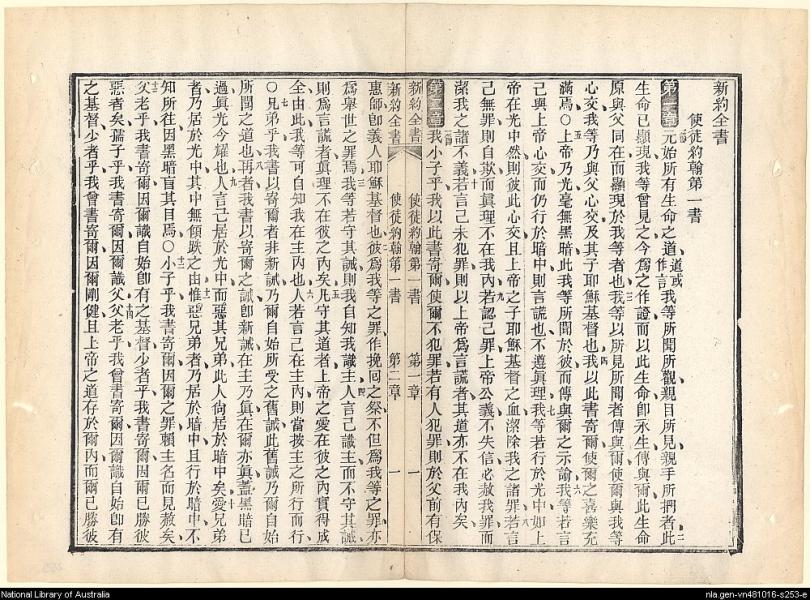 新約全書
使徒約翰第一書
第一章元始所有生命之道道或作言我等所聞所觀親目所見親手所捫者此二
生命已顯現我等曾見之今爲之作證而以此生命卽永生傳與爾此生命
原與父同在而顯現於我等者也三我等以所見所聞者傳與爾使爾與我等
心交我等乃與父心交及其子耶穌基督也四我以此書寄爾使爾之喜樂充
滿焉○五上帝乃光毫無黑暗此我等所聞於彼而傳與爾之示諭六我等若言
己與上帝心交而仍行於暗中則言謊也不遵眞理七我等若行於光中如上
帝在光中然則彼此心交且上帝之子耶穌基督之血潔除我之諸罪八若言
己無罪則自欺而眞理不在我內九若認己罪上帝公義不失信必赦我罪而
潔我之諸不義十若言己未犯罪則以上帝爲言謊者其道亦不在我內矣
第二章我小子乎我以此書寄爾使爾不犯罪若有人犯罪則於父前有保
新約全書 使徒約翰第一書 第一章 一
新約全書 使徒約翰第一書 第二章 一
惠師卽義人耶穌基督也二彼爲我等之罪作挽回之祭不但爲我等之罪亦
爲舉世之罪焉三我等若守其誡則我自知我識主四人言己識主而不守其誡
則爲言謊者眞理不在彼之內矣五凡守其道者上帝之愛在彼之內實得成
全由此我等可自知我在主內也六人若言己在主內則當撥主之所行而行
○七兄弟乎我書以寄爾者非新誡乃爾自始所受之舊誡此舊誡乃爾自始
所聞之道也八再者我書以寄爾之誡卽新誡在主乃眞在爾亦眞蓋黑暗已
過眞光今耀也九人言己居於光中而惡其兄弟此人尙居於暗中矣十愛兄弟
者乃居於光中其中無傾跌之由十一惟惡兄弟者乃居於暗中且行於暗中不
知所往因黑暗盲其目焉○十二小子乎我書寄爾因爾之罪賴主名而見赦矣
十三父老乎我書寄爾因爾識自始卽有之基督少者乎我書寄爾因爾已勝彼
惡者矣孺子乎我書寄爾因爾識父十四父老乎我曾書寄爾因爾識自始卽有
之基督少者乎我曾書寄爾因爾剛健且上帝之道存於爾內而爾已勝彼
National Library of Australia
nla.gen-vn481016-s253-e